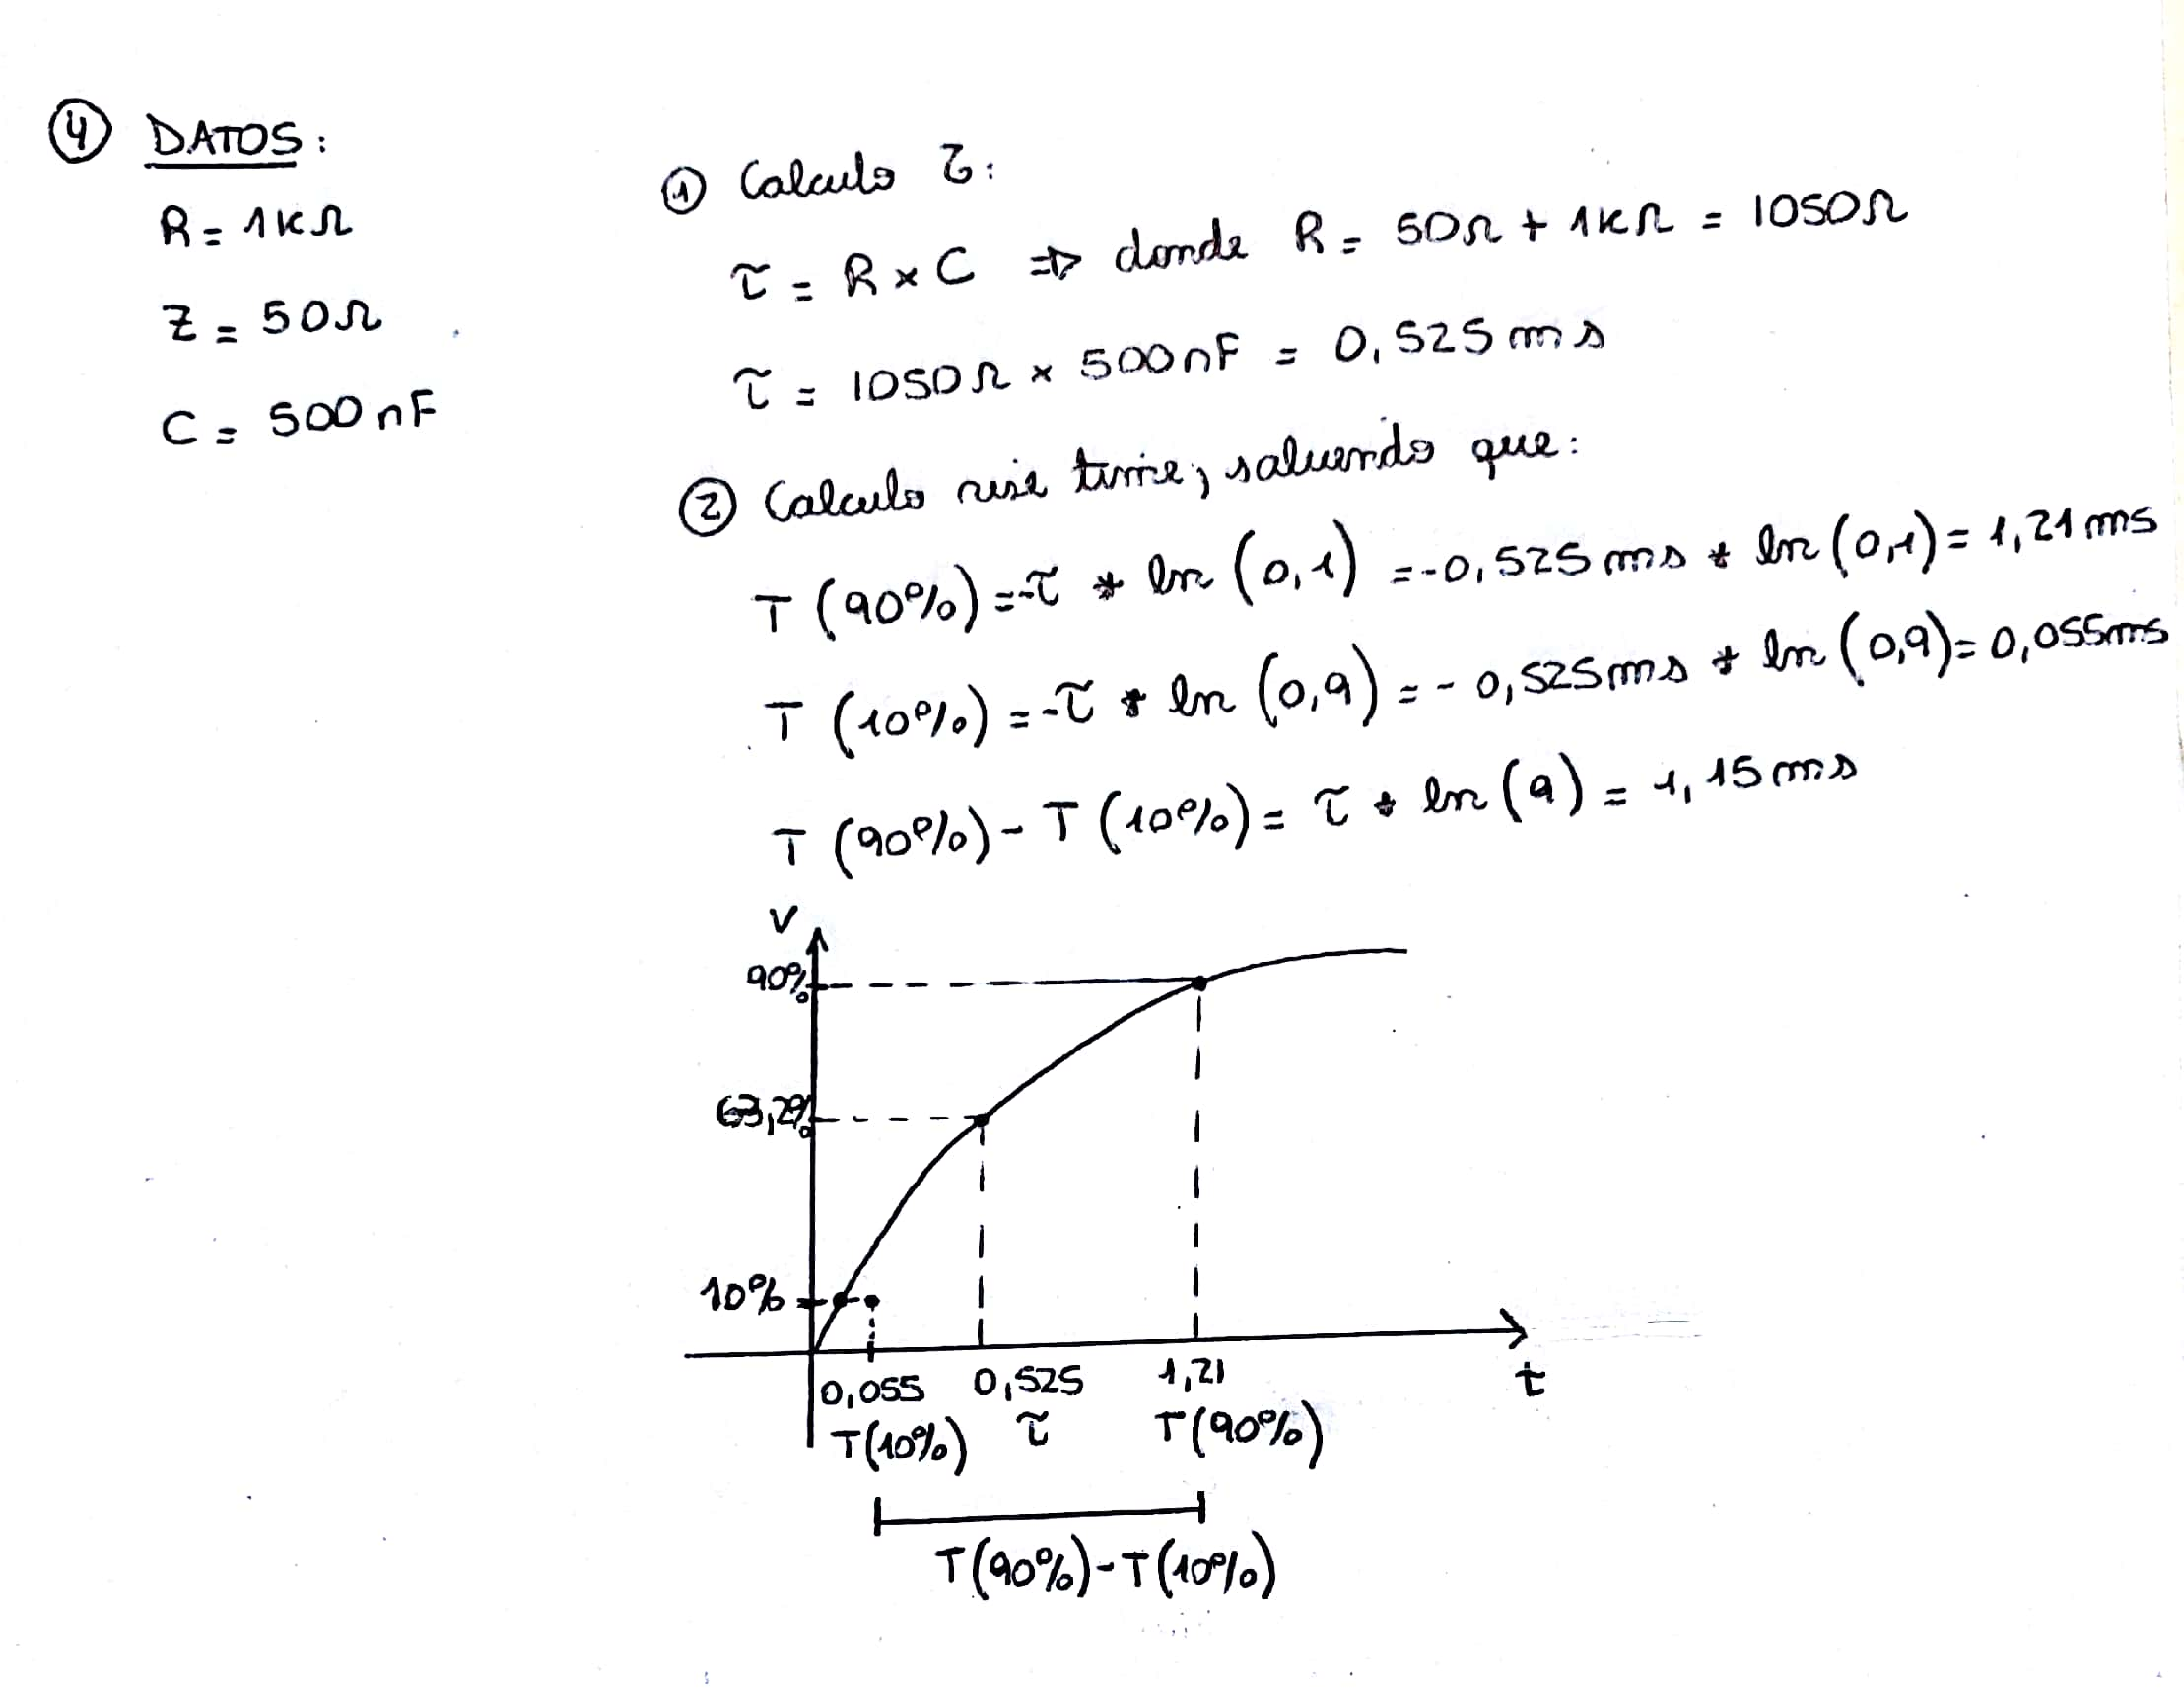 ④ DATOS:
R = 1KΩ
Z = 50Ω
C = 500 nF
① Calculo τ:
τ = R × C ⇒ donde R = 50Ω + 1KΩ = 1050Ω
τ = 1050Ω × 500nF = 0,525 ms
② Calculo rise time, sabiendo que:
T (90%) = -τ * ln (0,1) = -0,525 ms * ln (0,1) = 1,21 ms
T (10%) = -τ * ln (0,9) = -0,525 ms * ln (0,9) = 0,055ms
T (90%) - T (10%) = τ * ln (9) = 1,15 ms
V
90%
63,2%
10%
0,055 0,525 1,21 t
T(10%) τ T(90%)
T(90%) - T(10%)